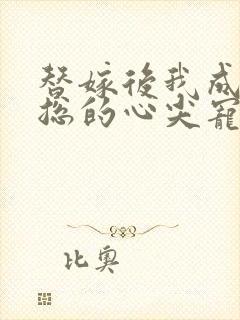 替嫁後我成
總的心尖寵
比奧